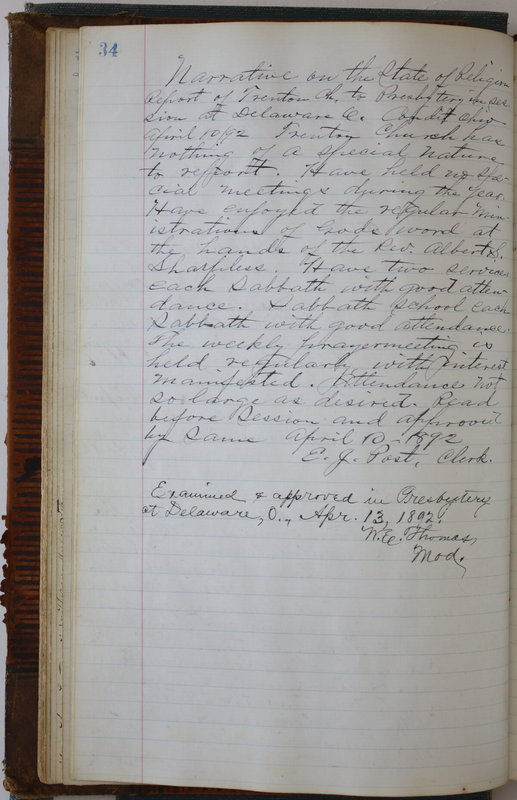 34
Narrative on the State of Religion
Report of Trenton Ch, to Presbytery in ses-
sion at Delaware O. Condit Ohio
April 10/92 Trenton Church has
nothing of a special nature
to report. Have held no spe-
cial meetings during the year.
Have enjoyed the regular min-
istrations of Gods word at
the hands of the Rev. Albert S.
Sharpless. Have two services
each Sabbath with good atten-
dance. Sabbath School each
Sabbath with good attendance.
The weekly prayermeeting is
held regularly with interest
manifested. Attendance not
so large as desired. Read
before Session and approved
by same April 10, 1892
E. J. Post, Clerk.
Examined & approved in Presbytery
at Delaware, O., Apr. 13, 1892.
Thomas,
Mod.